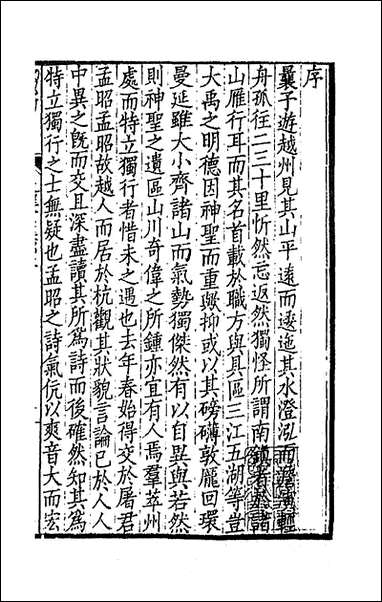 序
曩子遊越州見其山平遠而邐迤其水澄泓而
舟孤徃二三十里忻然忘返然獨怪所謂南鎮者於諸
山雁行耳而其名首載於職方與具區三江五湖等豈
大禹之明德因神聖而重與抑或以其磅礴敦龐回環
曼延雖大小齊諸山而氣勢獨傑然有以自異與若然
則神聖之遺區山川奇偉之所鍾亦宜有人焉羣萃州
處而特立獨行者惜未之遇也去年春始得交於屠君
孟昭孟昭故越人而居於杭觀其狀貌言論已於人人
中異之旣而交且深盡讀其所爲詩而後確然知其爲
特立獨行之士無疑也孟昭之詩氣伉以爽音大而宏